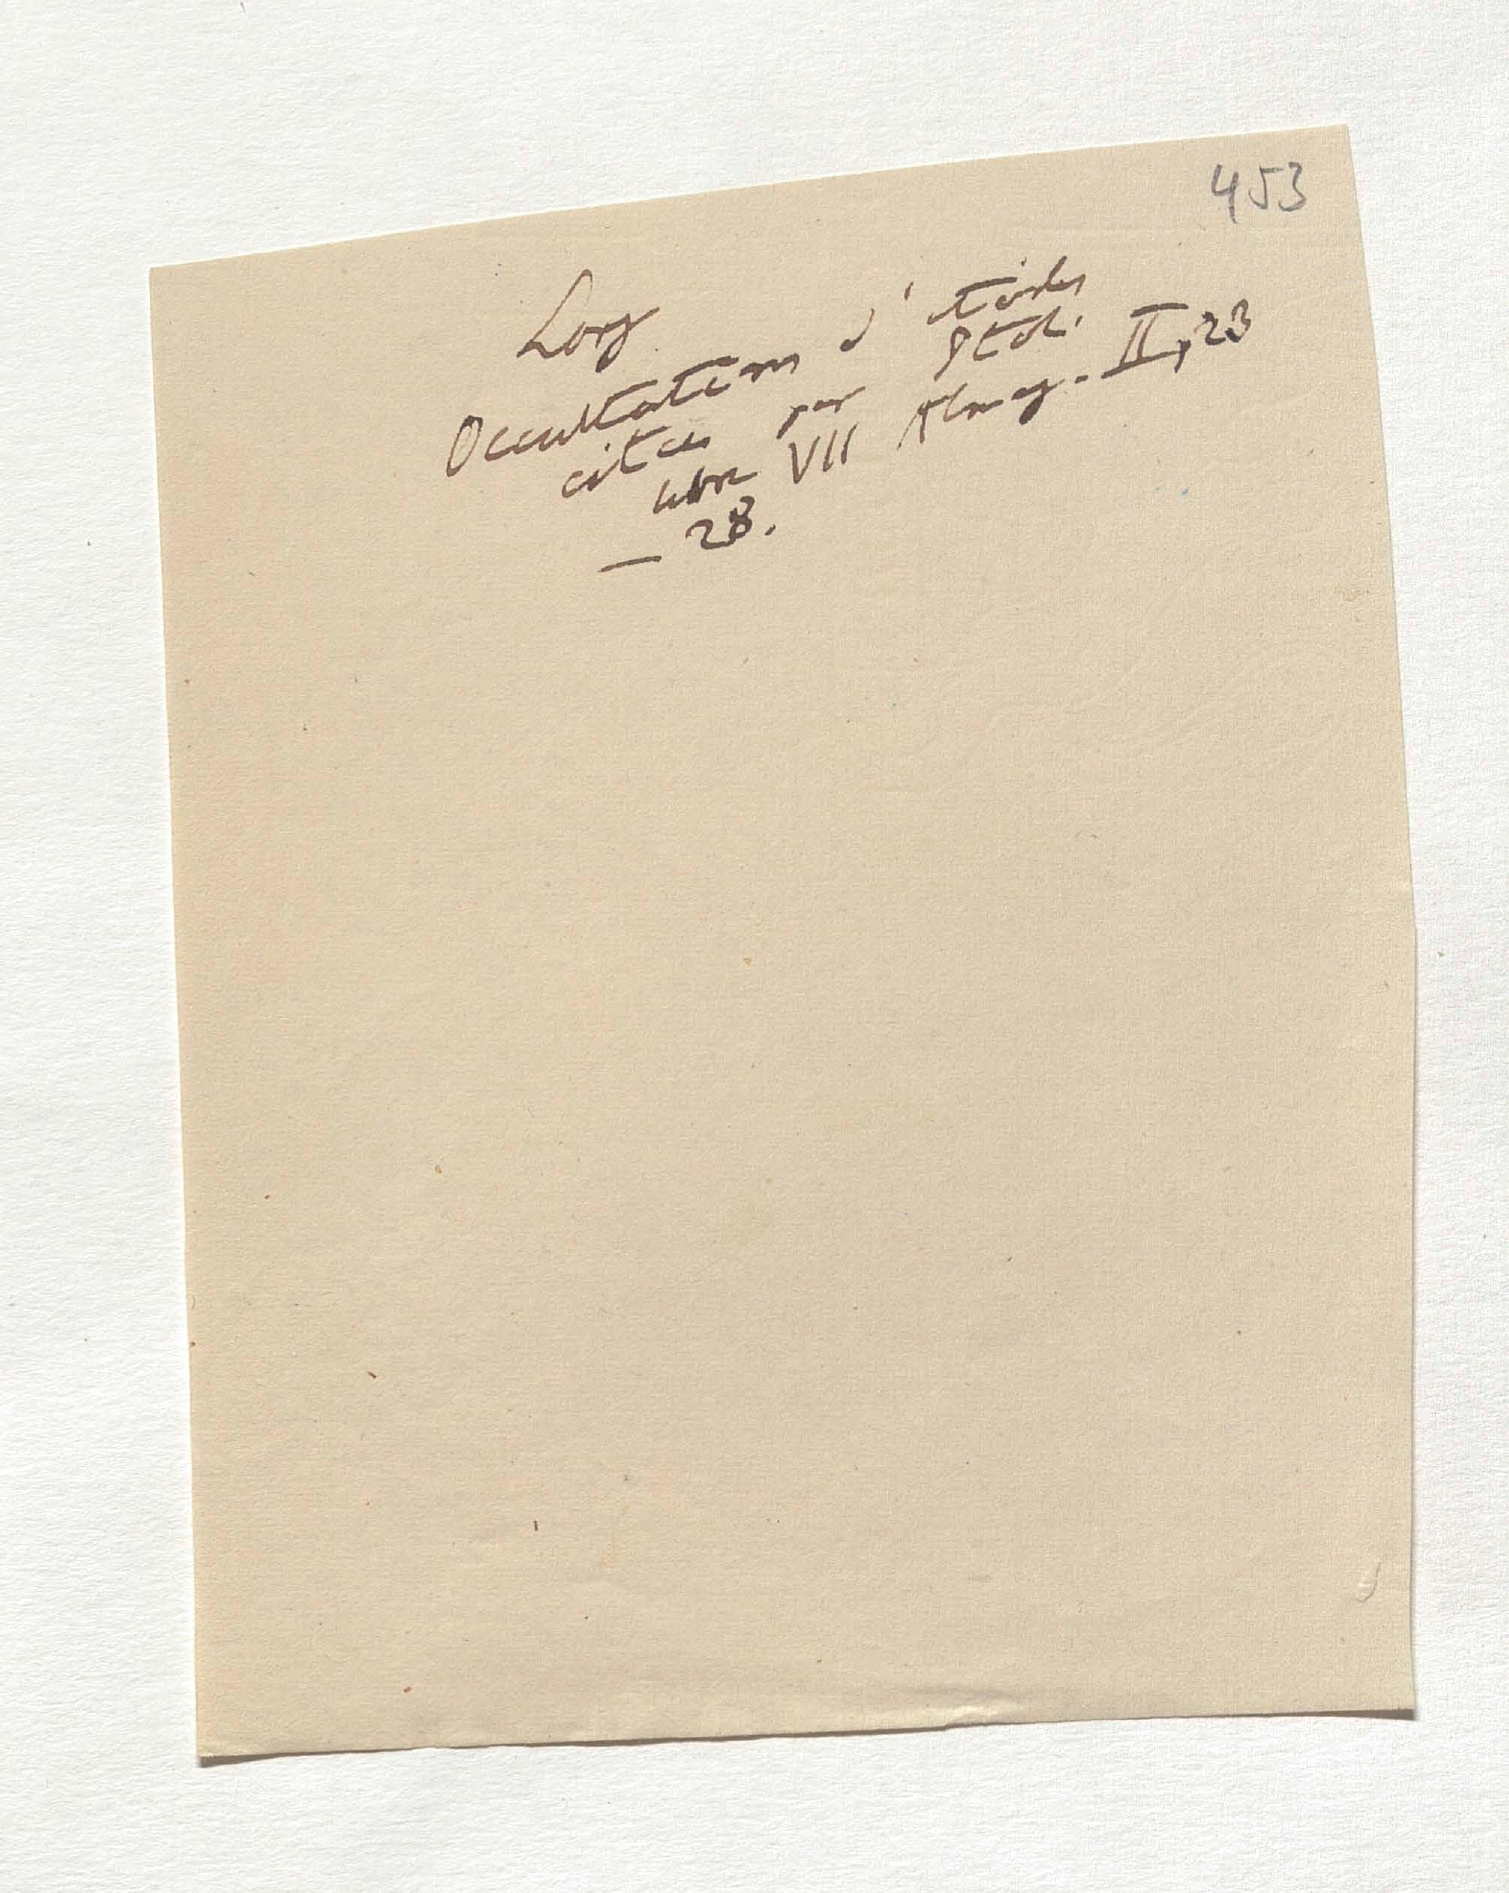 453
Long
Occultations d'étoiles
citées par Ptol.
livre VII Almag. II, 23
— 28.